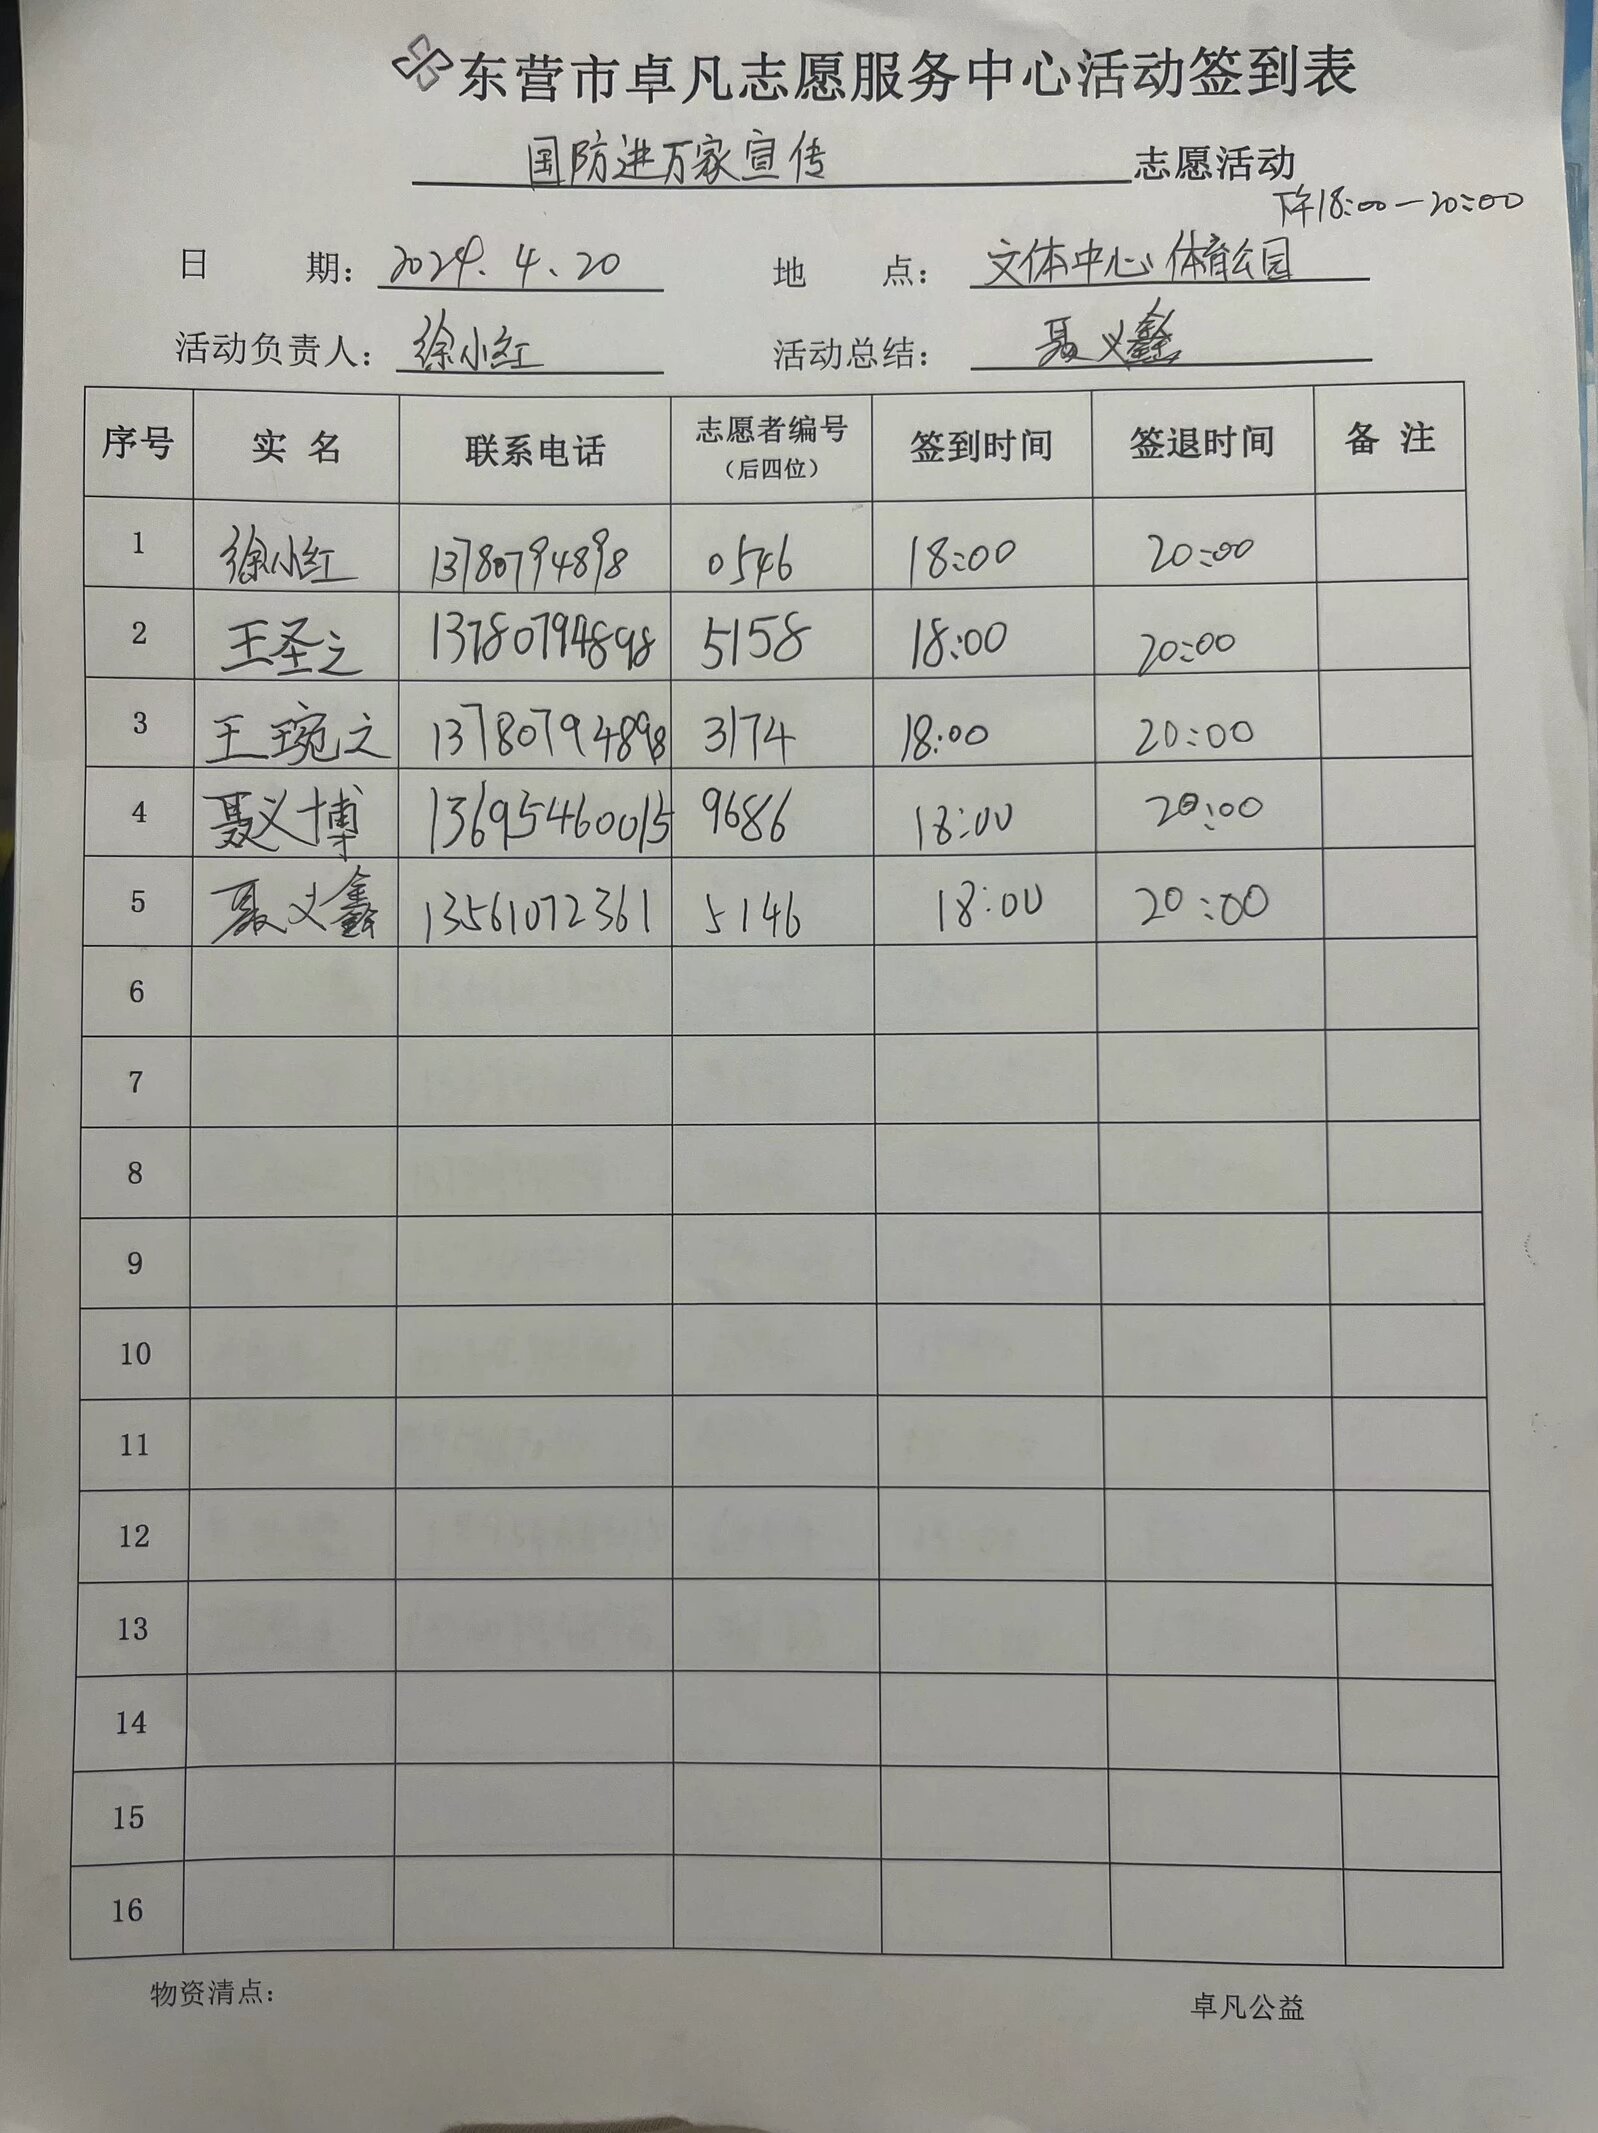 东营市卓凡志愿服务中心活动签到表
国防进万家宣传 志愿活动
下午18:00-20:00
日 期: 2024.4.20 地 点: 文体中心体育公园
活动负责人: 徐小红 活动总结: 聂义鑫
序号 实名 联系电话 志愿者编号（后四位） 签到时间 签退时间 备注
1 徐小红 13780794898 0546 18:00 20:00
2 王圣之 13780794898 5158 18:00 20:00
3 王琬之 13780794898 3174 18:00 20:00
4 聂义博 13695460015 9686 18:00 20:00
5 聂义鑫 13561072361 5146 18:00 20:00
6
7
8
9
10
11
12
13
14
15
16
物资清点: 卓凡公益